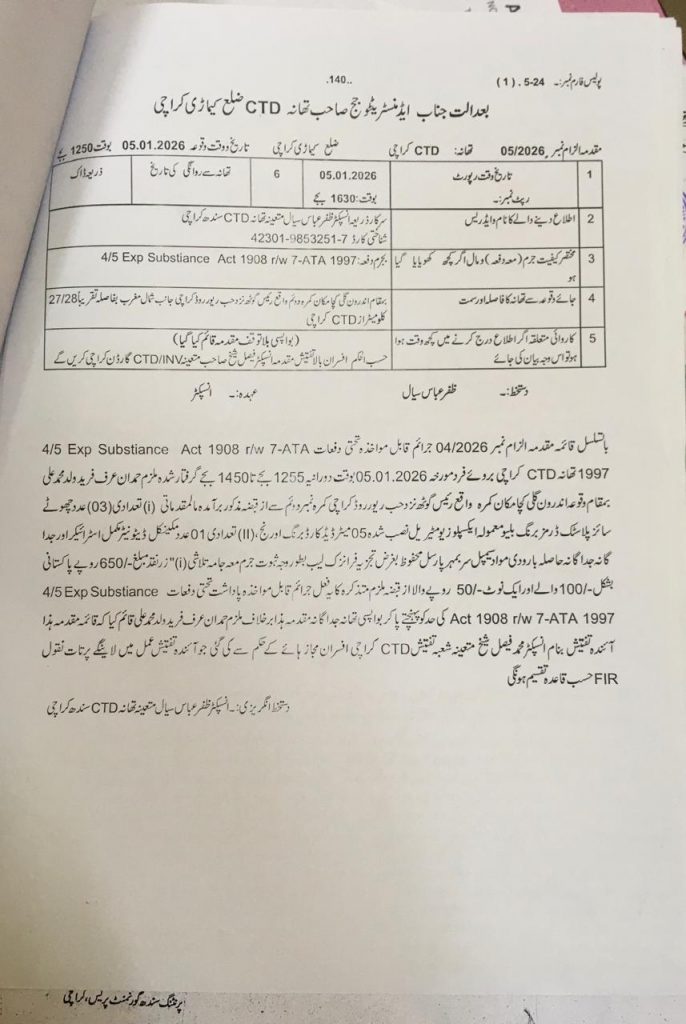 پولیس فارم نمبر:۔ 24-5 . (1)
..140.
بعدالت جناب ایڈمنسٹریٹو جج صاحب تھانہ CTD ضلع کیماڑی کراچی
مقدمہ الزام نمبر 05/2026 تھانہ: CTD کراچی ضلع کیماڑی کراچی تاریخ و وقت وقوعہ 05.01.2026 بوقت 1250 بجے
1 تاریخ وقت رپورٹ 05.01.2026 6 تھانہ سے روانگی کی تاریخ ذریعہ ڈاک
رپٹ نمبر:۔ بوقت: 1630 بجے
2 اطلاع دینے والے کا نام و ایڈریس سرکار ذریعہ انسپکٹر ظفر عباس سیال متعینہ تھانہ CTD سندھ کراچی
شناختی کارڈ 7-9853251-42301
3 مختصر کیفیت جرم (معہ دفعہ) و مال اگر کچھ کھویا یا گیا ہو بجرم دفعہ: 4/5 Exp Substiance Act 1908 r/w 7-ATA 1997
4 جائے وقوعہ سے تھانہ کا فاصلہ اور سمت بمقام اندرون گلی کچا مکان کمرہ واقع رئیس گوٹھ نزد حب ریور روڈ کراچی جانب شمال مغرب بفاصلہ تقریباً 27/28
کلومیٹر از CTD کراچی
5 کاروائی متعلقہ اگر اطلاع درج کرنے میں کچھ وقت ہوا (بواپسی بلا توقف مقدمہ قائم کیا گیا)
ہو تو اس وجہ بیان کی جائے حسب احکم افسران بالا تفتیش مقدمہ انسپکٹر فیصل شیخ صاحب متعینہ CTD/INV گارڈن کراچی کریں گے
دستخط:۔ ظفر عباس سیال عہدہ:۔ انسپکٹر
باتسلسل قائمہ مقدمہ الزام نمبر 04/2026 جرائم قابل مواخذہ تحتی دفعات 4/5 Exp Substiance Act 1908 r/w 7-ATA
1997 تھانہ CTD کراچی بروئے فرد مورخہ 05.01.2026 بوقت دورانیہ 1255 بجے تا 1450 بجے گرفتار شدہ ملزم حمدان عرف فرید ولد محمد علی
بمقام وقوعہ اندرون گلی کچا مکان کمرہ واقع رئیس گوٹھ نزد حب ریور روڈ کراچی کمرہ نمبر دوئم سے از قبضہ مذکور برآمدہ مالمقدماتی (i) تعدادی (03) عدد چھوٹے
سائز پلاسٹک ڈرمز برنگ بلیو معمولہ ایکسپلوزیو مٹیریل نصب شدہ 05 میٹر ڈیٹا کارڈ برنگ اورنج، (II) تعدادی 01 عدد مکینیکل ڈیٹونیٹر مکمل اسٹرائیکر اور جدا
گانہ جدا گانہ حاصلہ بارودی مواد سیمپل سربمہر پارسل محفوظ بغرض تجزیہ فرانزک لیب بطور وجہ ثبوت جرم معہ جامہ تلاشی (i)" زر نقد مبلغ -/650 روپے پاکستانی
بشکل -/100 والے اور ایک نوٹ -/50 روپے والا از قبضہ ملزم متذکرہ کا یہ فعل جرائم قابل مواخذہ پاداشت تحتی دفعات 4/5 Exp Substiance
Act 1908 r/w 7-ATA 1997 کی حد کو پہنچتے پا کر بواپسی تھانہ جدا گانہ مقدمہ ہذا برخلاف ملزم حمدان عرف فرید ولد محمد علی قائم کیا کہ قائمہ مقدمہ ہذا
آئندہ تفتیش بنام انسپکٹر محمد فیصل شیخ متعینہ شعبہ تفتیش CTD کراچی افسران مجاز ہائے کے حکم سے کی گئی جو آئندہ تفتیش عمل میں لائینگے پرتات نقول
FIR حسب قاعدہ تقسیم ہونگی
دستخط انگریزی:۔ انسپکٹر ظفر عباس سیال متعینہ تھانہ CTD سندھ کراچی
پرنٹنگ سندھ گورنمنٹ پریس، کراچی